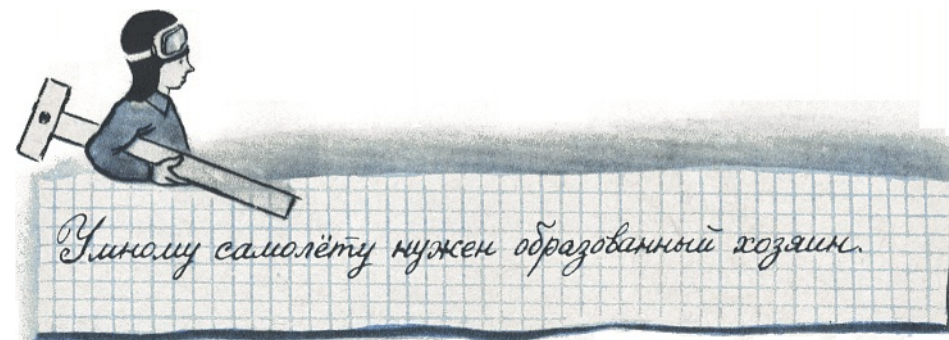 Умному самолёту нужен образованный хозяин.